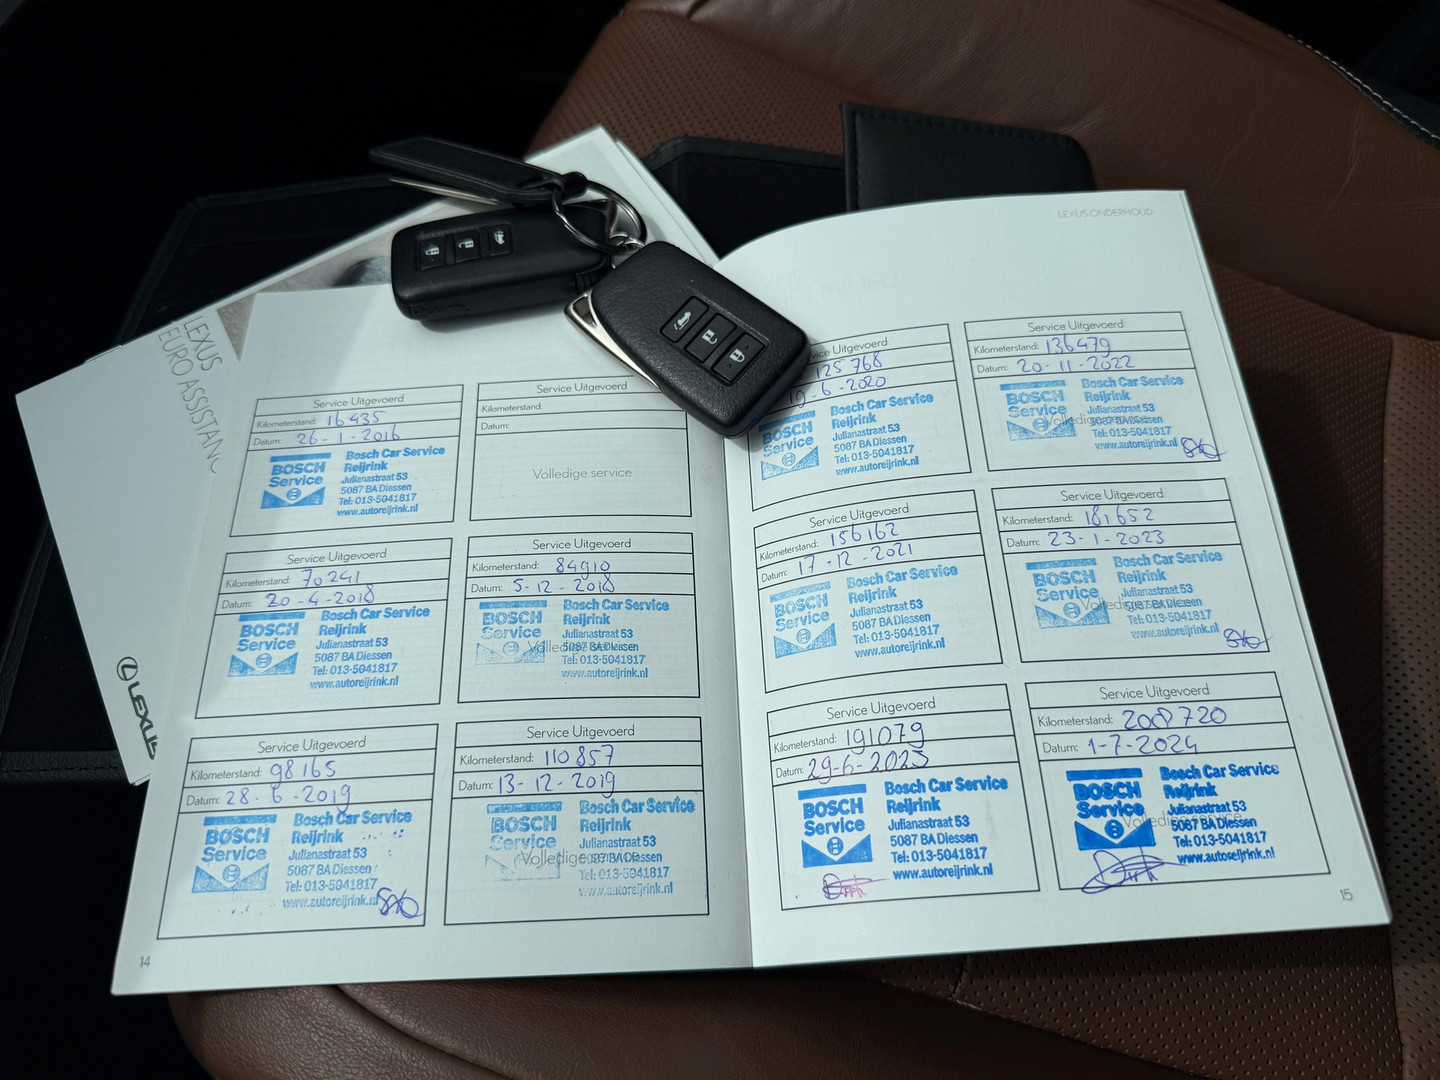 LEXUS
EURO ASSISTANC
LEXUS
Service Uitgevoerd
Kilometerstand: 16435
Datum: 26-1-2016
BOSCH
Service
Bosch Car Service
Reijrink
Julianastraat 53
5087 BA Diessen
Tel: 013-5041817
www.autoreijrink.nl
Service Uitgevoerd
Kilometerstand:
Datum:
Volledige service
Service Uitgevoerd
Kilometerstand: 70241
Datum: 20-4-2018
BOSCH
Service
Bosch Car Service
Reijrink
Julianastraat 53
5087 BA Diessen
Tel: 013-5041817
www.autoreijrink.nl
Service Uitgevoerd
Kilometerstand: 84910
Datum: 5-12-2018
BOSCH
Service
Bosch Car Service
Reijrink
Julianastraat 53
5087 BA Diessen
Tel: 013-5041817
www.autoreijrink.nl
Service Uitgevoerd
Kilometerstand: 98165
Datum: 28-6-2019
BOSCH
Service
Bosch Car Service
Reijrink
Julianastraat 53
5087 BA Diessen
Tel: 013-5041817
www.autoreijrink.nl
Service Uitgevoerd
Kilometerstand: 110857
Datum: 13-12-2019
BOSCH
Service
Bosch Car Service
Reijrink
Julianastraat 53
Volledige service
5087 BA Diessen
Tel: 013-5041817
www.autoreijrink.nl
14
LEXUS ONDERHOUD
Service Uitgevoerd
125768
19-6-2020
BOSCH
Service
Bosch Car Service
Reijrink
Julianastraat 53
5087 BA Diessen
Tel: 013-5041817
www.autoreijrink.nl
Service Uitgevoerd
Kilometerstand: 136479
Datum: 20-11-2022
BOSCH
Service
Bosch Car Service
Reijrink
Julianastraat 53
5087 BA Diessen
Tel: 013-5041817
www.autoreijrink.nl
Service Uitgevoerd
Kilometerstand: 156162
Datum: 17-12-2021
BOSCH
Service
Bosch Car Service
Reijrink
Julianastraat 53
5087 BA Diessen
Tel: 013-5041817
www.autoreijrink.nl
Service Uitgevoerd
Kilometerstand: 181652
Datum: 23-1-2023
BOSCH
Service
Bosch Car Service
Reijrink
Julianastraat 53
5087 BA Diessen
Tel: 013-5041817
www.autoreijrink.nl
Service Uitgevoerd
Kilometerstand: 191079
Datum: 29-6-2023
BOSCH
Service
Bosch Car Service
Reijrink
Julianastraat 53
5087 BA Diessen
Tel: 013-5041817
www.autoreijrink.nl
Service Uitgevoerd
Kilometerstand: 208720
Datum: 1-7-2024
BOSCH
Service
Bosch Car Service
Reijrink
Julianastraat 53
Volledige service
5087 BA Diessen
Tel: 013-5041817
www.autoreijrink.nl
15